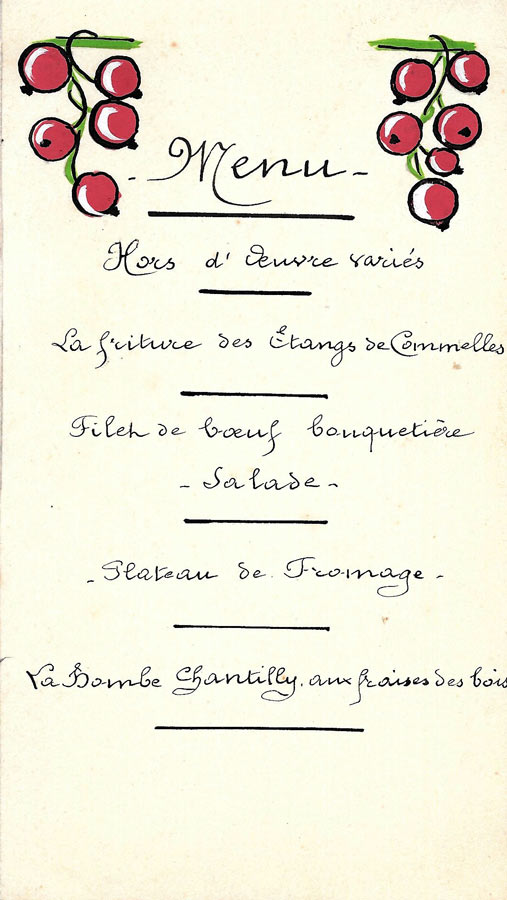 - Menu -
Hors d'Œuvre variés
La friture des Étangs de Commelles
Filet de bœuf bouquetière
- Salade -
- Plateau de Fromage -
La Bombe Chantilly aux fraises des bois